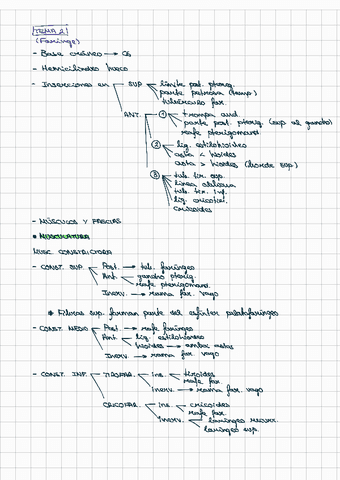 TEMA 2
(Faringe)
- Base cráneo → C6
- Hemicilindro hueco
- Inserciones en SUP límite post. pterig.
parte petrosa (temp)
tubérculo far.
ANT. 1 trompa aud.
parte post. pterig. (sup al gancho)
rafe pterigomand.
2 lig. estilohioideo
asta < hioides
asta > hioides (borde sup)
3 tub. tir. sup.
línea oblicua
tub. tir. inf.
lig. cricotir.
cricoides
- MÚSCULOS Y FASCIAS
MUSCULATURA
MUSC. CONSTRICTORA
- CONST. SUP Post. → tub. faríngeo
Ant. gancho pterig.
rafe pterigomand.
Inerv. → rama far. vago
* Fibras sup. forman parte del esfínter palatofaríngeo
- CONST. MEDIO Post → rafe faríngeo
Ant lig. estilohioideo
hioides → ambas astas
Inerv → rama far. vago
- CONST. INF. TIROFAR. ins. tiroides
rafe far.
inerv. → rama far. vago
CRICOFAR. ins. cricoides
rafe far.
inerv. laríngeo recurr.
laríngeo sup.